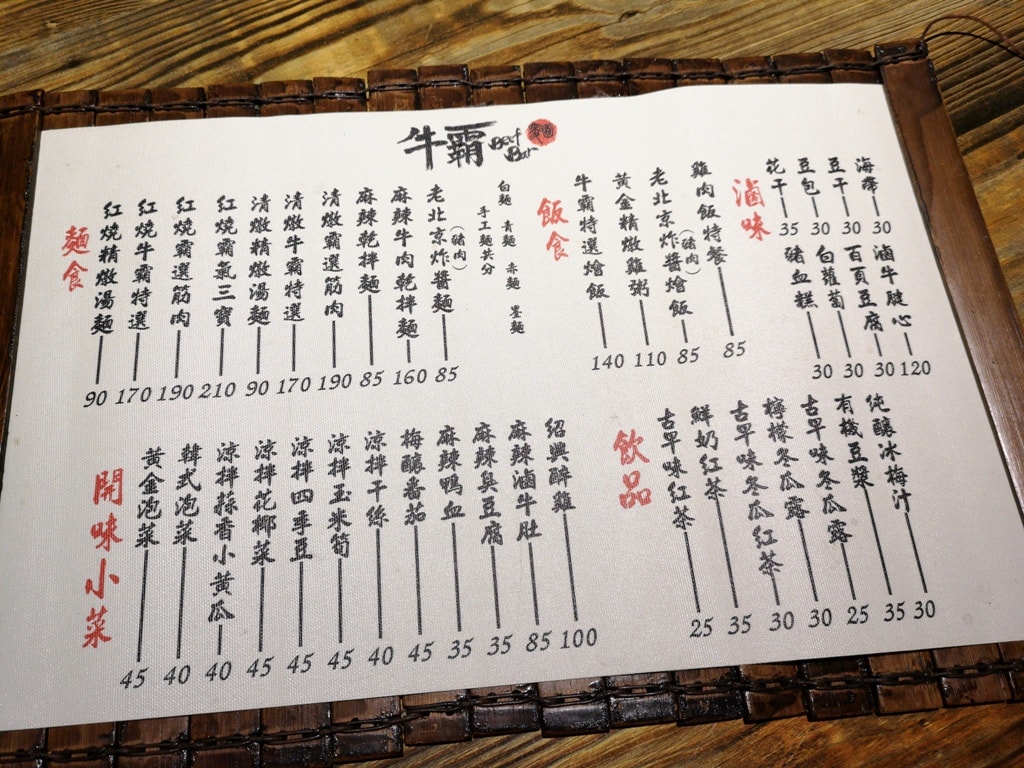 牛霸
Beef Bar
麵食
紅燒精燉湯麵 90
紅燒牛霸特選 170
紅燒霸選筋肉 190
紅燒霸氣三寶 210
清燉精燉湯麵 90
清燉牛霸特選 170
清燉霸選筋肉 190
麻辣乾拌麵 85
麻辣牛肉乾拌麵 160
老北京炸醬麵(豬肉) 85
手工麵共分
白麵 青麵 赤麵 墨麵
飯食
牛霸特選燴飯 140
黃金精燉雞粥 110
老北京炸醬燴飯(豬肉) 85
雞肉飯特餐 85
滷味
花干 35
豆包 30
豆干 30
海帶 30
豬血糕 30
白蘿蔔 30
百頁豆腐 30
滷牛腱心 120
開味小菜
黃金泡菜 45
韓式泡菜 40
涼拌蒜香小黃瓜 40
涼拌花椰菜 45
涼拌四季豆 45
涼拌玉米筍 45
涼拌干絲 40
梅釀番茄 45
麻辣鴨血 35
麻辣臭豆腐 35
麻辣滷牛肚 85
紹興醉雞 100
飲品
古早味紅茶 25
鮮奶紅茶 35
古早味冬瓜紅茶 30
檸檬冬瓜露 30
古早味冬瓜露 25
有機豆漿 35
純釀冰梅汁 30